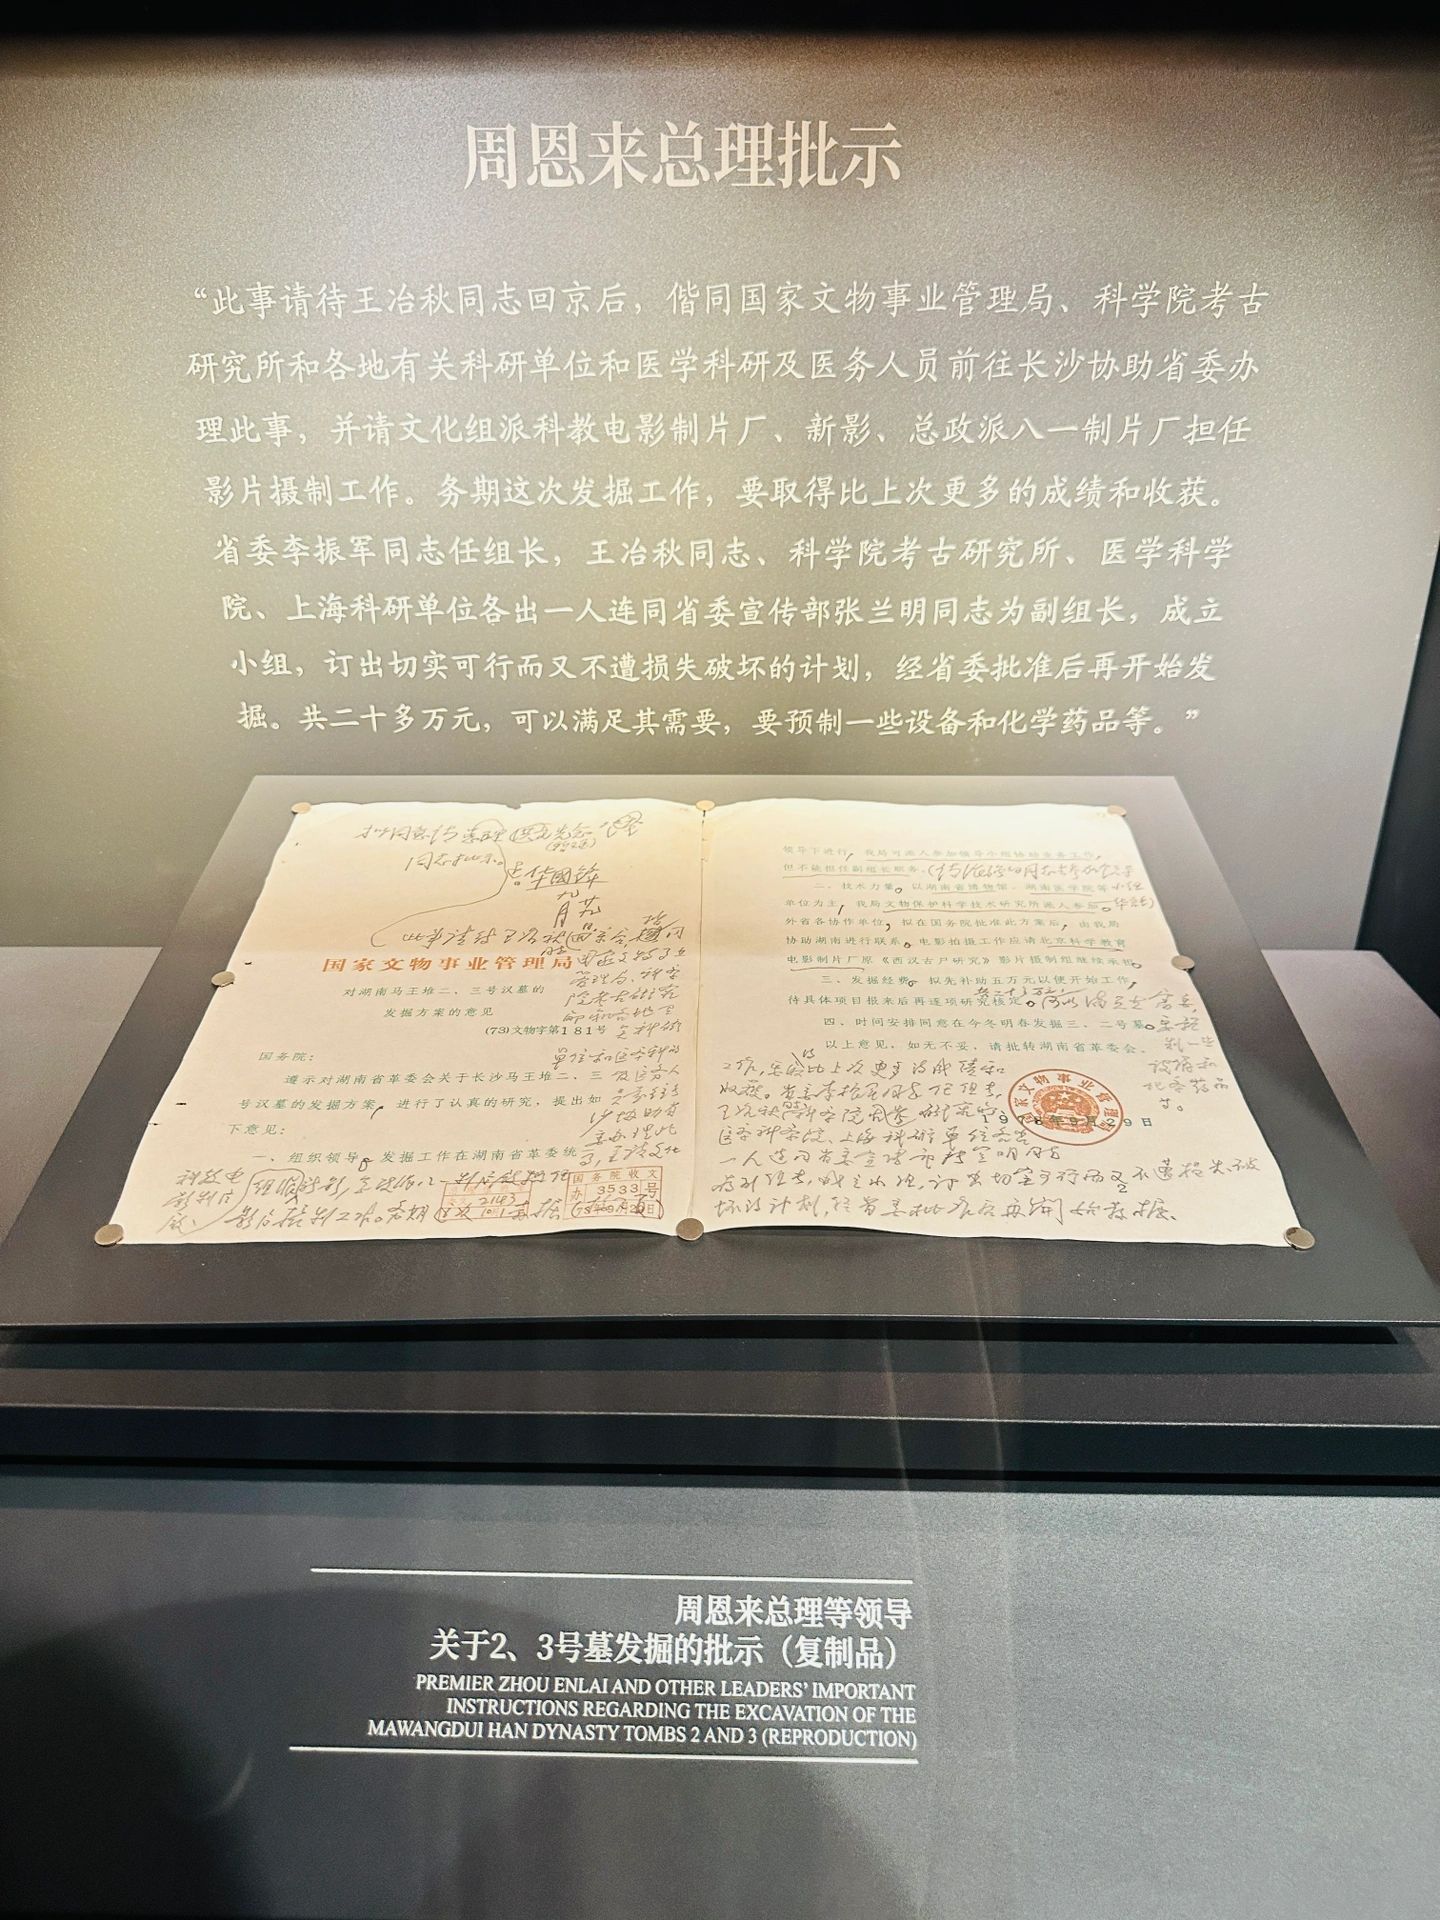 周恩来总理批示
“此事请待王冶秋同志回京后，偕同国家文物事业管理局、科学院考古
研究所和各地有关科研单位和医学科研及医务人员前往长沙协助省委办
理此事，并请文化组派科教电影制片厂、新影、总政派八一制片厂担任
影片摄制工作。务期这次发掘工作，要取得比上次更多的成绩和收获。
省委李振军同志任组长，王冶秋同志、科学院考古研究所、医学科学
院、上海科研单位各出一人连同省委宣传部张兰明同志为副组长，成立
小组，订出切实可行而又不遭损失破坏的计划，经省委批准后再开始发
掘。共二十多万元，可以满足其需要，要预制一些设备和化学药品等。”
同志批示。
华国锋
国家文物事业管理局
对湖南马王堆二、三号汉墓的
发掘方案的意见
(73)文物字第181号
国务院：
遵示对湖南省革委会关于长沙马王堆二、三
号汉墓的发掘方案，进行了认真的研究，提出如
下意见：
一、组织领导。发掘工作在湖南省革委统
国务院收文
办 3533 号
2143
领导下进行，我局可派人参加领导小组协助业务工作，
但不能担任副组长职务。
二、技术力量。以湖南省博物馆、湖南医学院等
单位为主，我局文物保护科学技术研究所派人参加。
外省各协作单位，拟在国务院批准此方案后，由我局
协助湖南进行联系。电影拍摄工作应请北京科学教育
电影制片厂原《西汉古尸研究》影片摄制组继续承担。
三、发掘经费。拟先补助五万元以便开始工作，
待具体项目报来后再逐项研究核定。
四、时间安排同意在今冬明春发掘三、二号墓。
以上意见，如无不妥，请批转湖南省革委会。
国家文物事业管理局
工作，要取得比上次更多的成绩和
收获。省委李振军同志任组长，
医学科学院、上海科研单位各出
一人连同省委宣传部张兰明同志
为副组长，成立小组，订出切实可行而又不遭损失破
坏的计划，经省委批准后再开始发掘。
周恩来总理等领导
关于2、3号墓发掘的批示（复制品）
PREMIER ZHOU ENLAI AND OTHER LEADERS' IMPORTANT
INSTRUCTIONS REGARDING THE EXCAVATION OF THE
MAWANGDUI HAN DYNASTY TOMBS 2 AND 3 (REPRODUCTION)